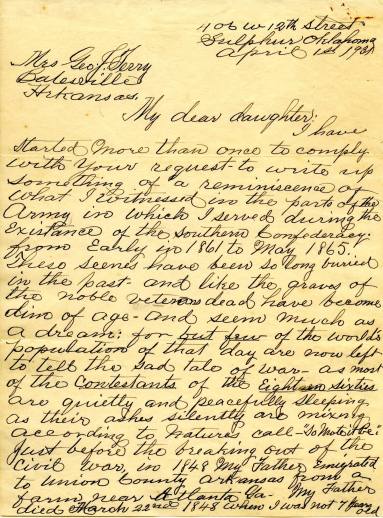 406 W 12th Street
Sulphur Oklahoma
April 1st
Mrs Geo J. Terry
Batesville
Arkansas
My dear daughter:
I have
started more than once to comply
with your request to write up
something of a reminiscence of
what I witnessed in the parts of the
Army in which I served during the
Existance of the Southern Confederacy.
from Early in 1861 to May 1865.
These scenes have been so long buried
in the past- and like the graves of
the noble veterans dead have become
dim of age- and seem much as
a dream: for but few of the worlds
population of that day are now left
to tell the sad tale of war- as most
of the contestants of the Eighteen Sixties
are quietly and peacefully sleeping
as their ashes silently are mixing
according to natures call- "So Mote it Be"
Just before the breaking out of the
Civil war, in 1848 My Father Emigrated
to Union County Arkansas from a
farm near Atlanta Ga- My Father
died March 22nd 1848 when I was not 7 years old